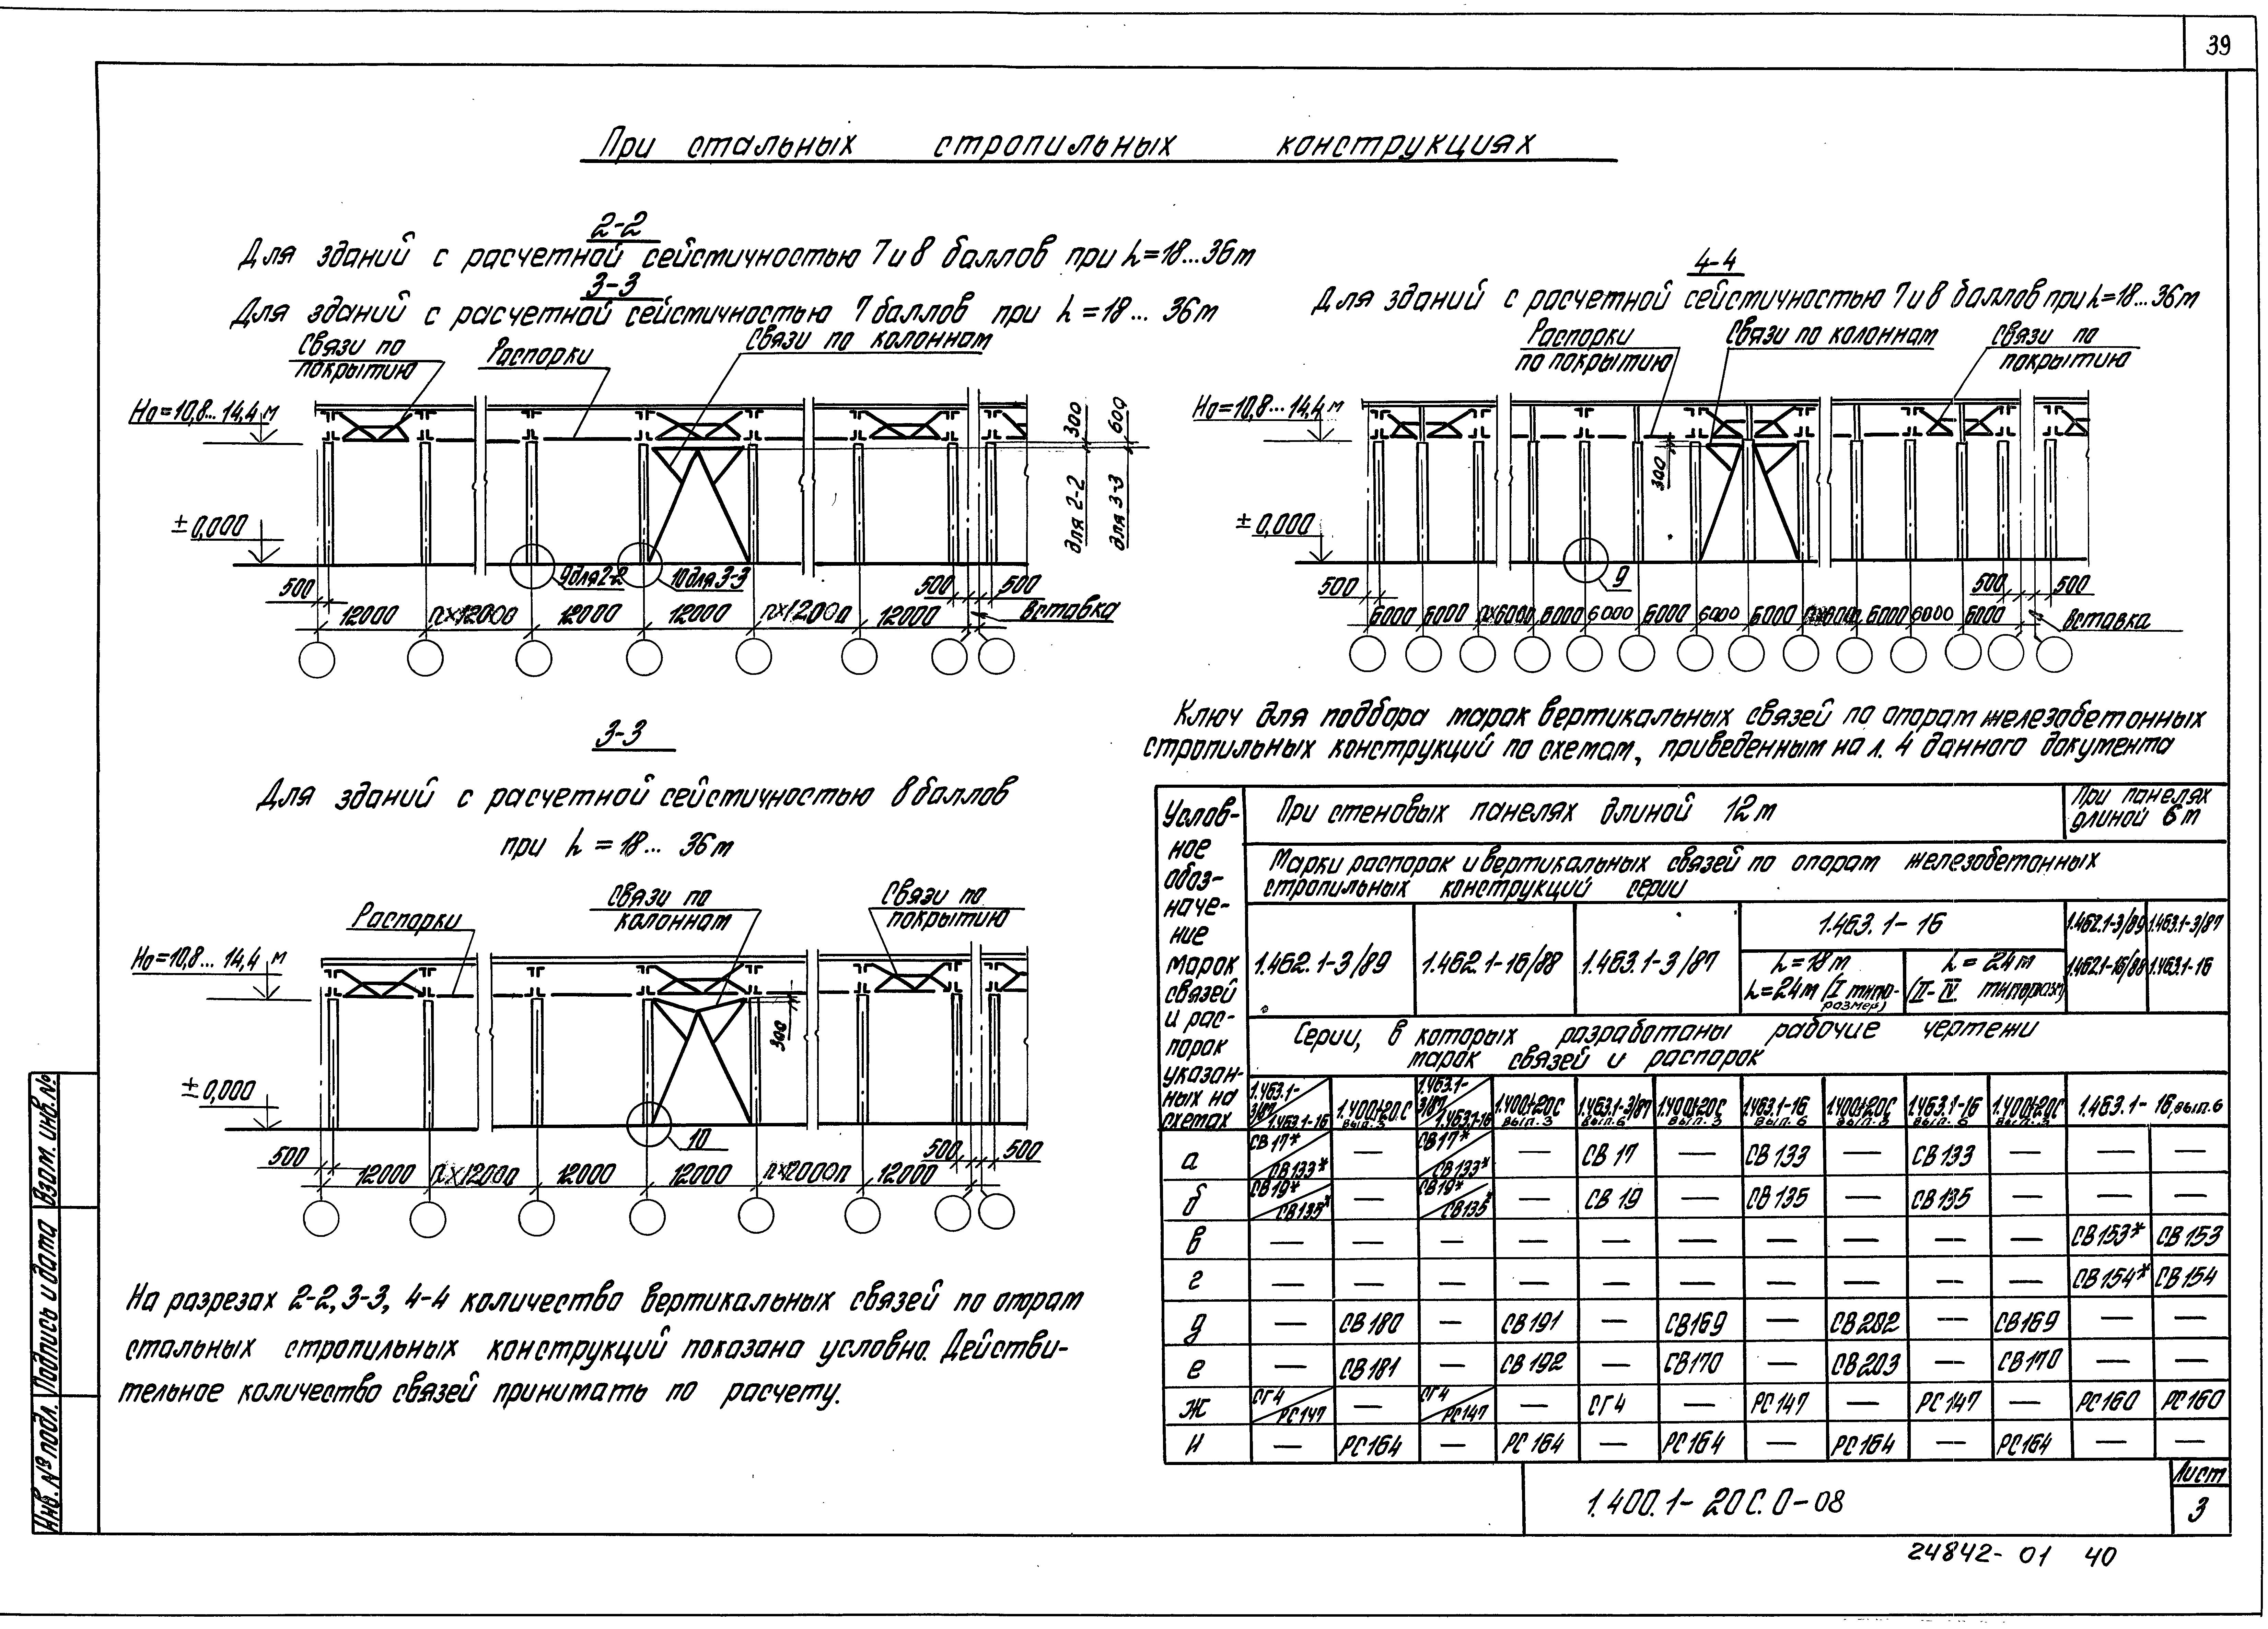 39
При стальных стропильных конструкциях
2-2
Для зданий с расчетной сейсмичностью 7 и 8 баллов при h=18...36м
3-3
Для зданий с расчетной сейсмичностью 7 баллов при h=18...36м
Связи по покрытию
Распорки
Связи по колоннам
Но=10,8...14,4м
±0,000
300
600
для 2-2
для 3-3
9 для 2-2
10 для 3-3
500
500
500
12000
n×12000
12000
12000
n×12000
12000
Вставка
4-4
Для зданий с расчетной сейсмичностью 7 и 8 баллов при h=18...36м
Распорки по покрытию
Связи по колоннам
Связи по покрытию
Но=10,8...14,4м
300
±0,000
9
500
500
500
6000 6000 n×6000 6000 6000 6000 6000 6000 n×6000 6000 6000 6000
Вставка
3-3
Для зданий с расчетной сейсмичностью 8 баллов
при h=18... 36м
Распорки
Связи по колоннам
Связи по покрытию
Но=10,8...14,4м
300
±0,000
10
500
500
500
12000
n×12000
12000
12000
n×12000
12000
На разрезах 2-2, 3-3, 4-4 количество вертикальных связей по опорам
стальных стропильных конструкций показана условно. Действи-
тельное количество связей принимать по расчету.
Ключ для подбора марок вертикальных связей по опорам железобетонных
стропильных конструкций по схемам, приведенным на л. 4 данного документа
Условное обозначение марок связей и распорок указанных на схемах
При стеновых панелях длиной 12м
При панелях длиной 6м
Марки распорок и вертикальных связей по опорам железобетонных
стропильных конструкций серии
1.462.1-3/89
1.462.1-16/88
1.463.1-3/87
1.463.1-16
h=18м
h=24м (I типоразмер)
h=24м
(II-IV типоразм)
1.462.1-3/89
1.462.1-16/88
1.463.1-3/87
1.463.1-16
Серии, в которых разработаны рабочие чертежи
марок связей и распорок
1.463.1-3/87 / 1.463.1-16
1.400.1-20С вып.3
1.463.1-3/87 / 1.463.1-16
1.400.1-20С вып.3
1.463.1-3/87 вып.6
1.400.1-20С вып.3
1.463.1-16 вып.6
1.400.1-20С вып.3
1.463.1-16 вып.6
1.400.1-20С вып.3
1.463.1-16, вып.6
а СВ17*/СВ133* — СВ17*/СВ133* — СВ17 — СВ133 — СВ133 — — —
б СВ19*/СВ135* — СВ19*/СВ135* — СВ19 — СВ135 — СВ135 — — —
в — — — — — — — — — — СВ153* СВ153
г — — — — — — — — — — СВ154* СВ154
д — СВ180 — СВ191 — СВ169 — СВ202 — СВ169 — —
е — СВ181 — СВ192 — СВ170 — СВ203 — СВ170 — —
ж СГ4/РС147 — СГ4/РС147 — СГ4 — РС147 — РС147 — РС160 РС160
и — РС164 — РС164 — РС164 — РС164 — РС164 — —
1.400.1-20С.0-08
Лист
3
24842-01 40
Взам. инв.№
Подпись и дата
Инв. № подл.